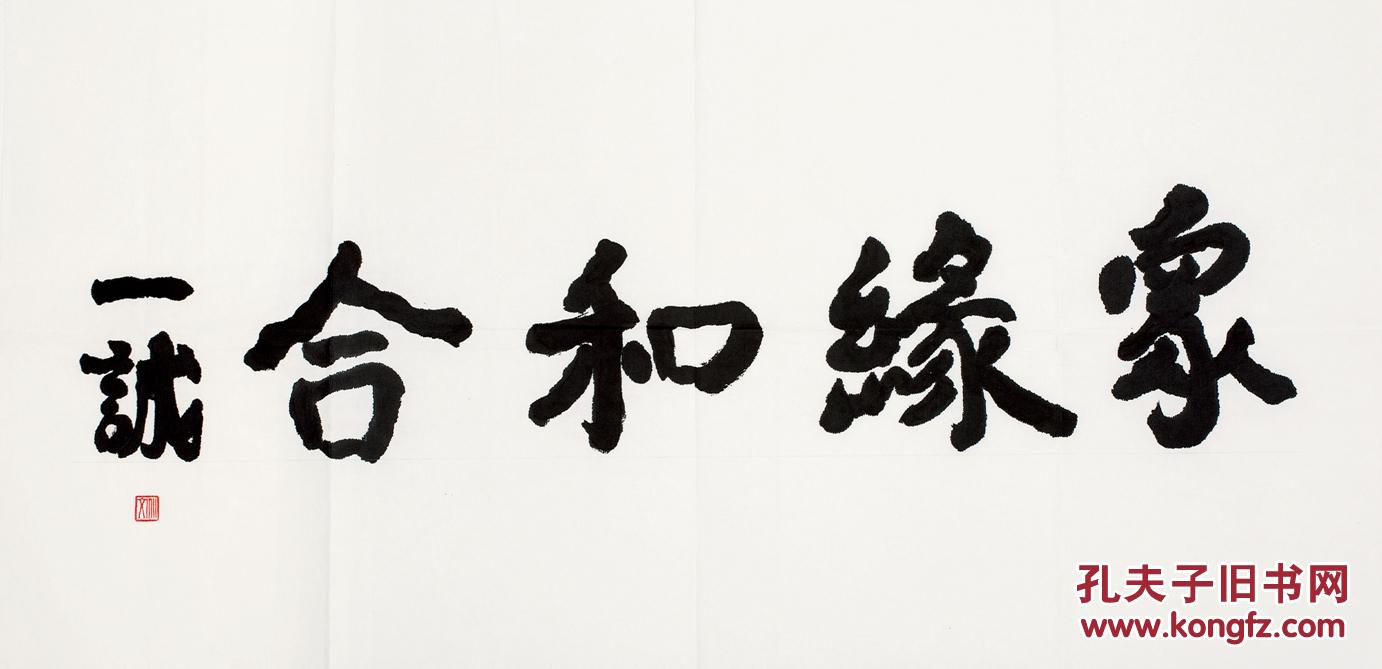 眾緣和合
一誠
孔夫子旧书网
www.kongfz.com